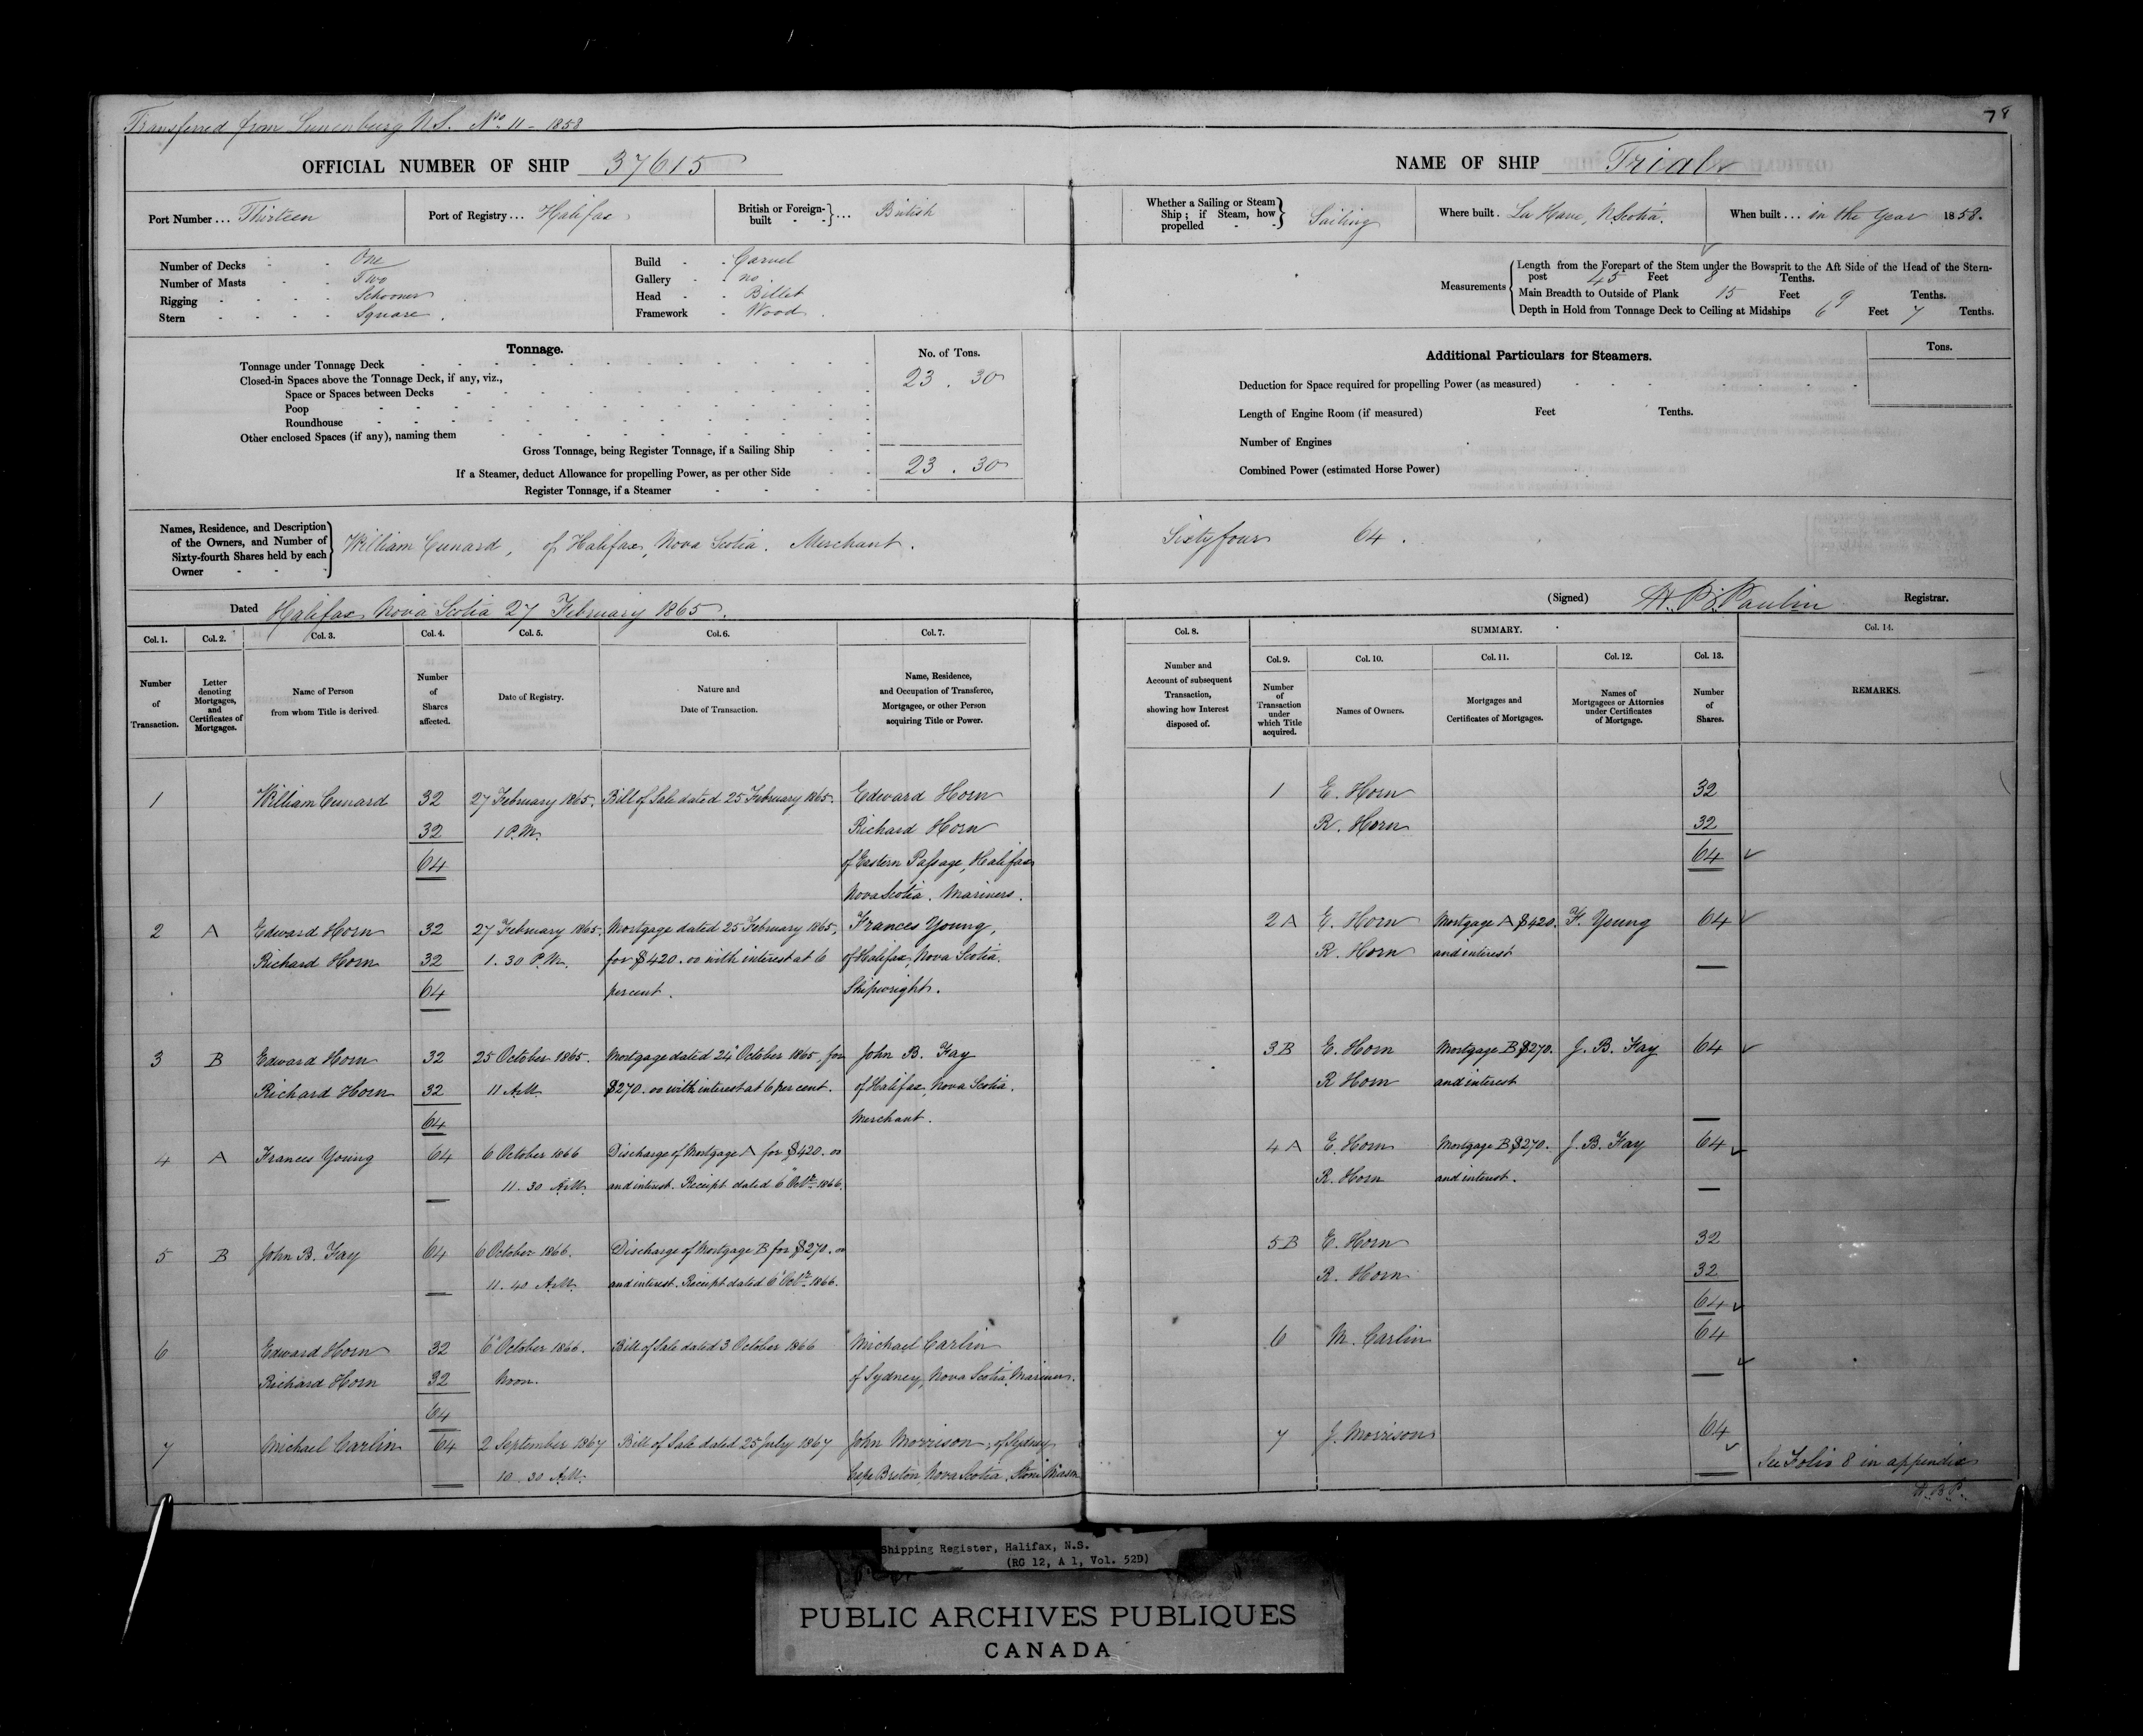 Transferred from Lunenburg N.S. No 11 - 1858
78
OFFICIAL NUMBER OF SHIP 37615
NAME OF SHIP Trial
Port Number ... Thirteen
Port of Registry ... Halifax
British or Foreign-built } ... British
Whether a Sailing or Steam Ship; if Steam, how propelled } Sailing
Where built. La Have, N. Scotia.
When built ... in the year 1858.
Number of Decks One
Number of Masts Two
Rigging Schooner
Stern Square
Build Carvel
Gallery no
Head Billet
Framework Wood
Measurements
Length from the Forepart of the Stem under the Bowsprit to the Aft Side of the Head of the Stern-
post 45 Feet 8 Tenths.
Main Breadth to Outside of Plank 15 Feet 9 Tenths.
Depth in Hold from Tonnage Deck to Ceiling at Midships 6 Feet 7 Tenths.
Tonnage.
No. of Tons.
Tonnage under Tonnage Deck 23 . 30
Closed-in Spaces above the Tonnage Deck, if any, viz.,
Space or Spaces between Decks
Poop
Roundhouse
Other enclosed Spaces (if any), naming them
Gross Tonnage, being Register Tonnage, if a Sailing Ship 23 . 30
If a Steamer, deduct Allowance for propelling Power, as per other Side
Register Tonnage, if a Steamer
Additional Particulars for Steamers.
Tons.
Deduction for Space required for propelling Power (as measured)
Length of Engine Room (if measured) Feet Tenths.
Number of Engines
Combined Power (estimated Horse Power)
Names, Residence, and Description
of the Owners, and Number of
Sixty-fourth Shares held by each
Owner
William Cunard, of Halifax, Nova Scotia. Merchant.
Sixty four 64.
Dated Halifax Nova Scotia 27 February 1865.
(Signed) H. P. Paulin Registrar.
Col. 1. Col. 2. Col. 3. Col. 4. Col. 5. Col. 6. Col. 7.
Number of Transaction.
Letter denoting Mortgages, and Certificates of Mortgages.
Name of Person from whom Title is derived.
Number of Shares affected.
Date of Registry.
Nature and Date of Transaction.
Name, Residence, and Occupation of Transferee, Mortgagee, or other Person acquiring Title or Power.
Col. 8. SUMMARY. Col. 14.
Col. 9. Col. 10. Col. 11. Col. 12. Col. 13.
Number and Account of subsequent Transaction, showing how Interest disposed of.
Number of Transaction under which Title acquired.
Names of Owners.
Mortgages and Certificates of Mortgages.
Names of Mortgagees or Attornies under Certificates of Mortgage.
Number of Shares.
REMARKS.
1 William Cunard 32 27 February 1865. Bill of Sale dated 25 February 1865. Edward Horn
32 1 P.M. Richard Horn
64 of Eastern Passage, Halifax
Nova Scotia. Mariners.
1 E. Horn 32
R. Horn 32
64
2 A Edward Horn 32 27 February 1865. Mortgage dated 25 February 1865, Frances Young,
Richard Horn 32 1.30 P.M. for $420.00 with interest at 6 of Halifax, Nova Scotia.
64 percent. Shipwright.
2 A E. Horn Mortgage A $420. F. Young 64
R. Horn and interest
3 B Edward Horn 32 25 October 1865. Mortgage dated 24 October 1865, for John B. Fay
Richard Horn 32 11 A.M. $270.00 with interest at 6 per cent. of Halifax, Nova Scotia.
64 Merchant.
3 B E. Horn Mortgage B $270. J. B. Fay 64
R Horn and interest
4 A Frances Young 64 6 October 1866 Discharge of Mortgage A for $420.00
11.30 A.M. and interest. Receipt dated 6 Octr. 1866.
4 A E. Horn Mortgage B $270. J. B. Fay 64
R. Horn and interest.
5 B John B. Fay 64 6 October 1866. Discharge of Mortgage B for $270.00
11.40 A.M. and interest. Receipt dated 6 Octr. 1866.
5 B E. Horn 32
R. Horn 32
64
6 Edward Horn 32 6 October 1866. Bill of Sale dated 3 October 1866 Michael Carlin
Richard Horn 32 Noon. of Sydney, Nova Scotia, Mariner.
64
6 M. Carlin 64
7 Michael Carlin 64 2 September 1867 Bill of Sale dated 25 July 1867 John Morrison, of Sydney
10.30 A.M. Cape Breton, Nova Scotia. Stone Mason
7 J. Morrison 64
See Folio 8 in appendix
Shipping Register, Halifax, N.S.
(RG 12, A 1, Vol. 52D)
PUBLIC ARCHIVES PUBLIQUES
CANADA